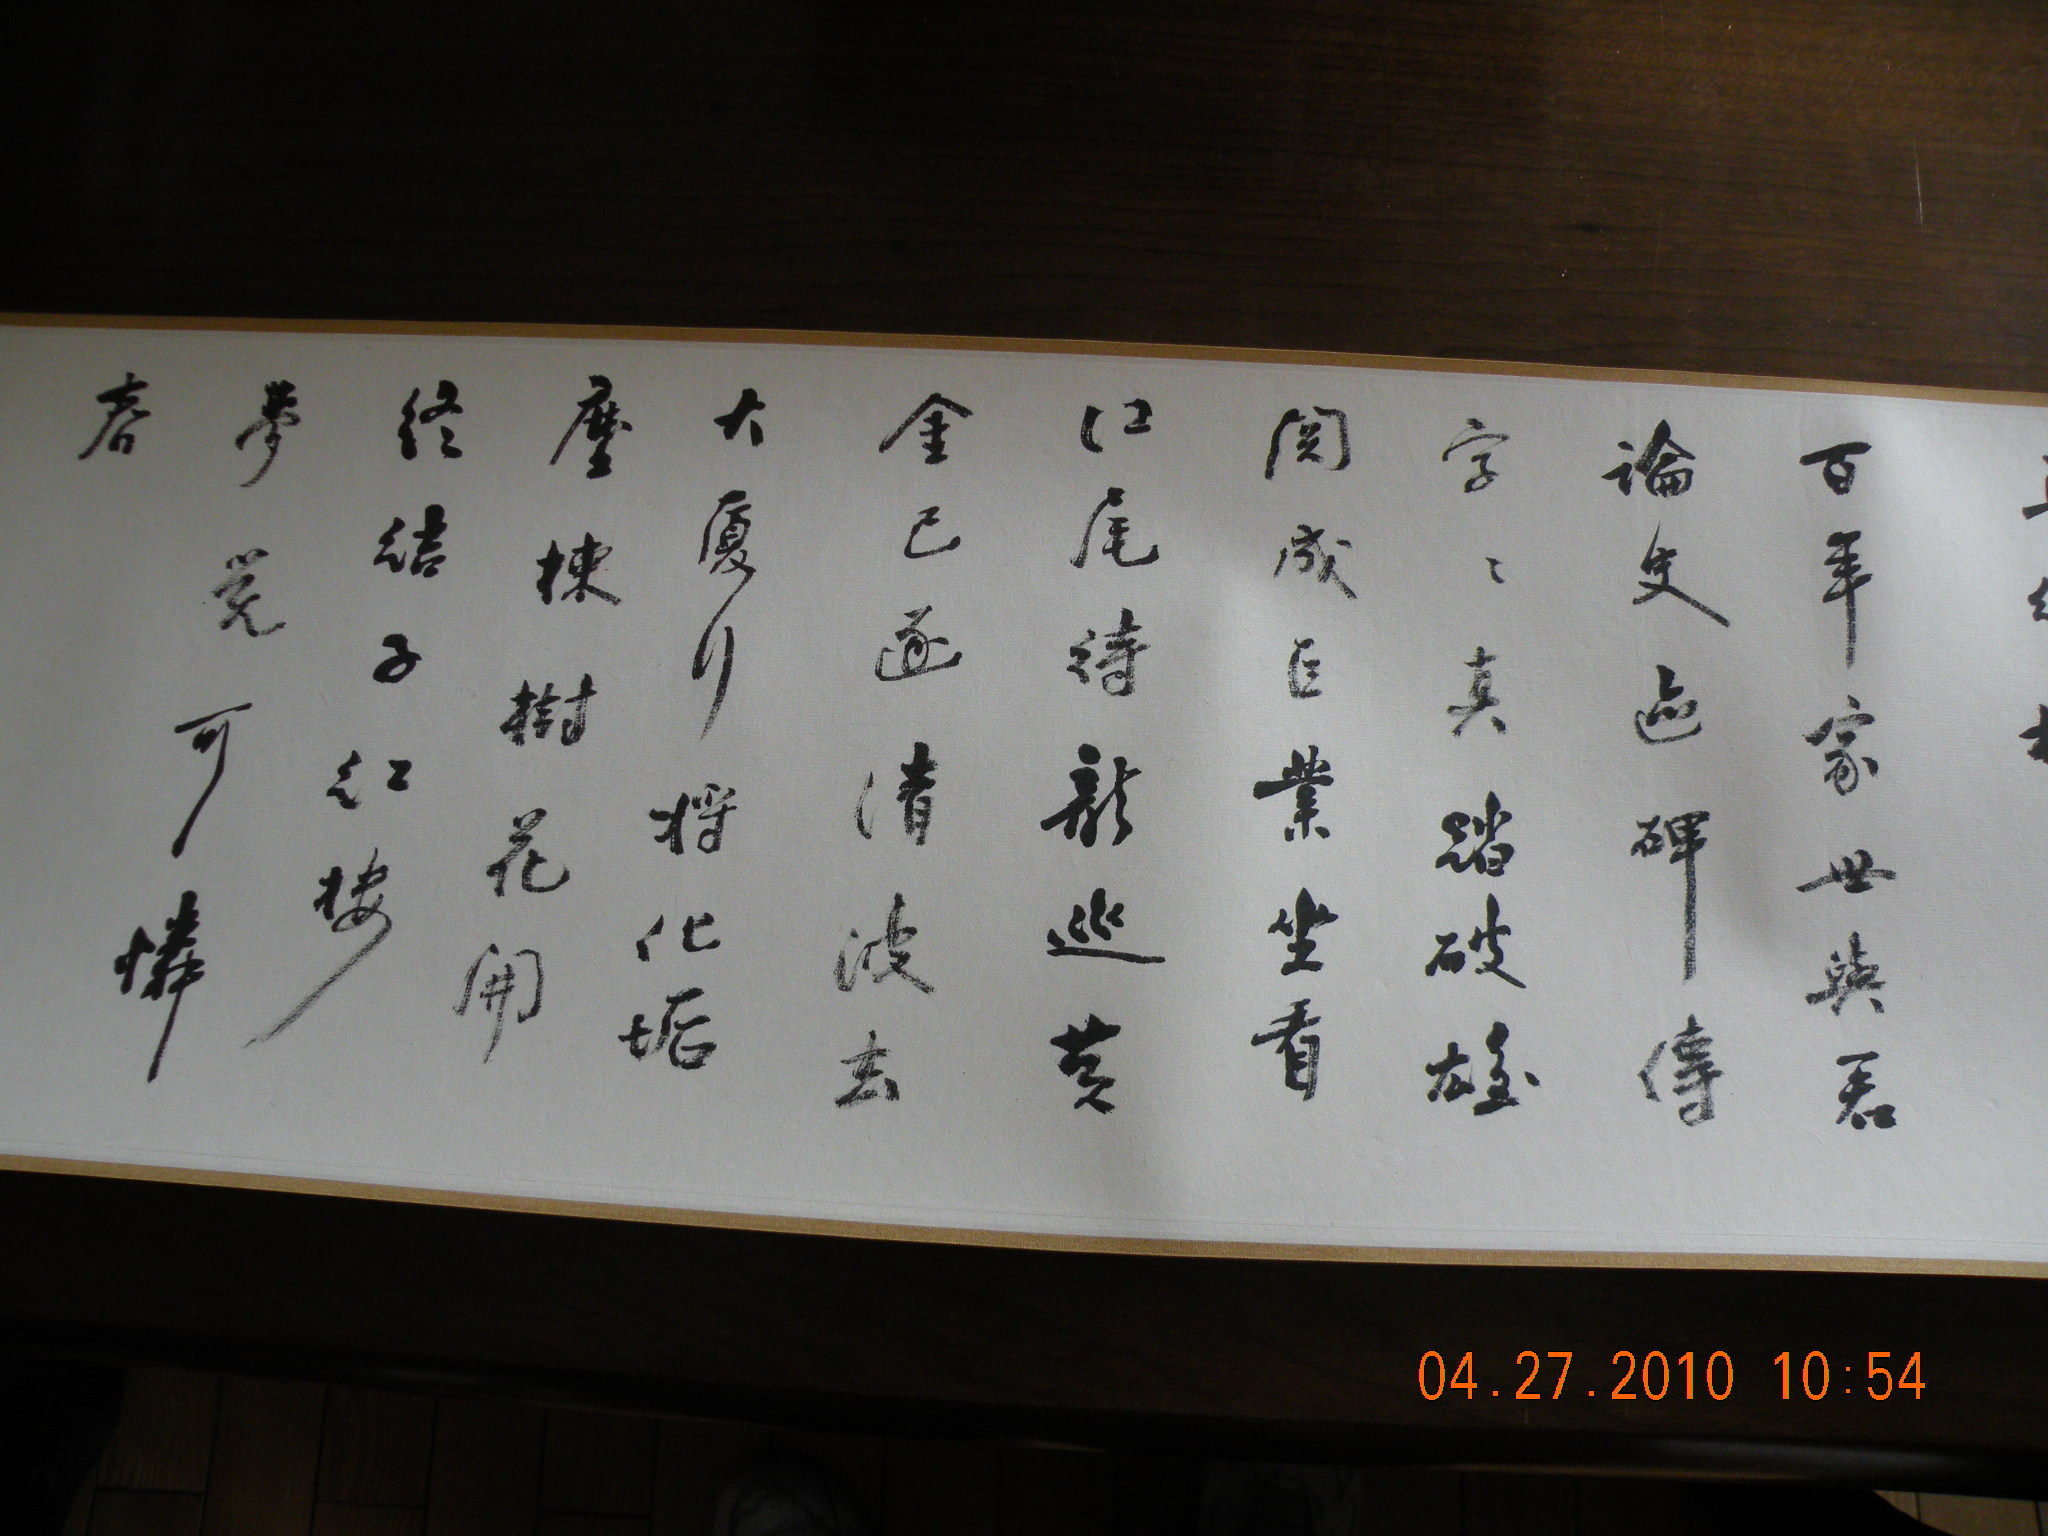 百年家世與君
論史迹碑傳
字〻真踏破雄
関成巨業坐看
江尾待龍巡黄
金已逐清波去
大廈行將化垢
塵楝樹花開
終結子紅樓
夢覺可憐
春
04.27.2010 10:54